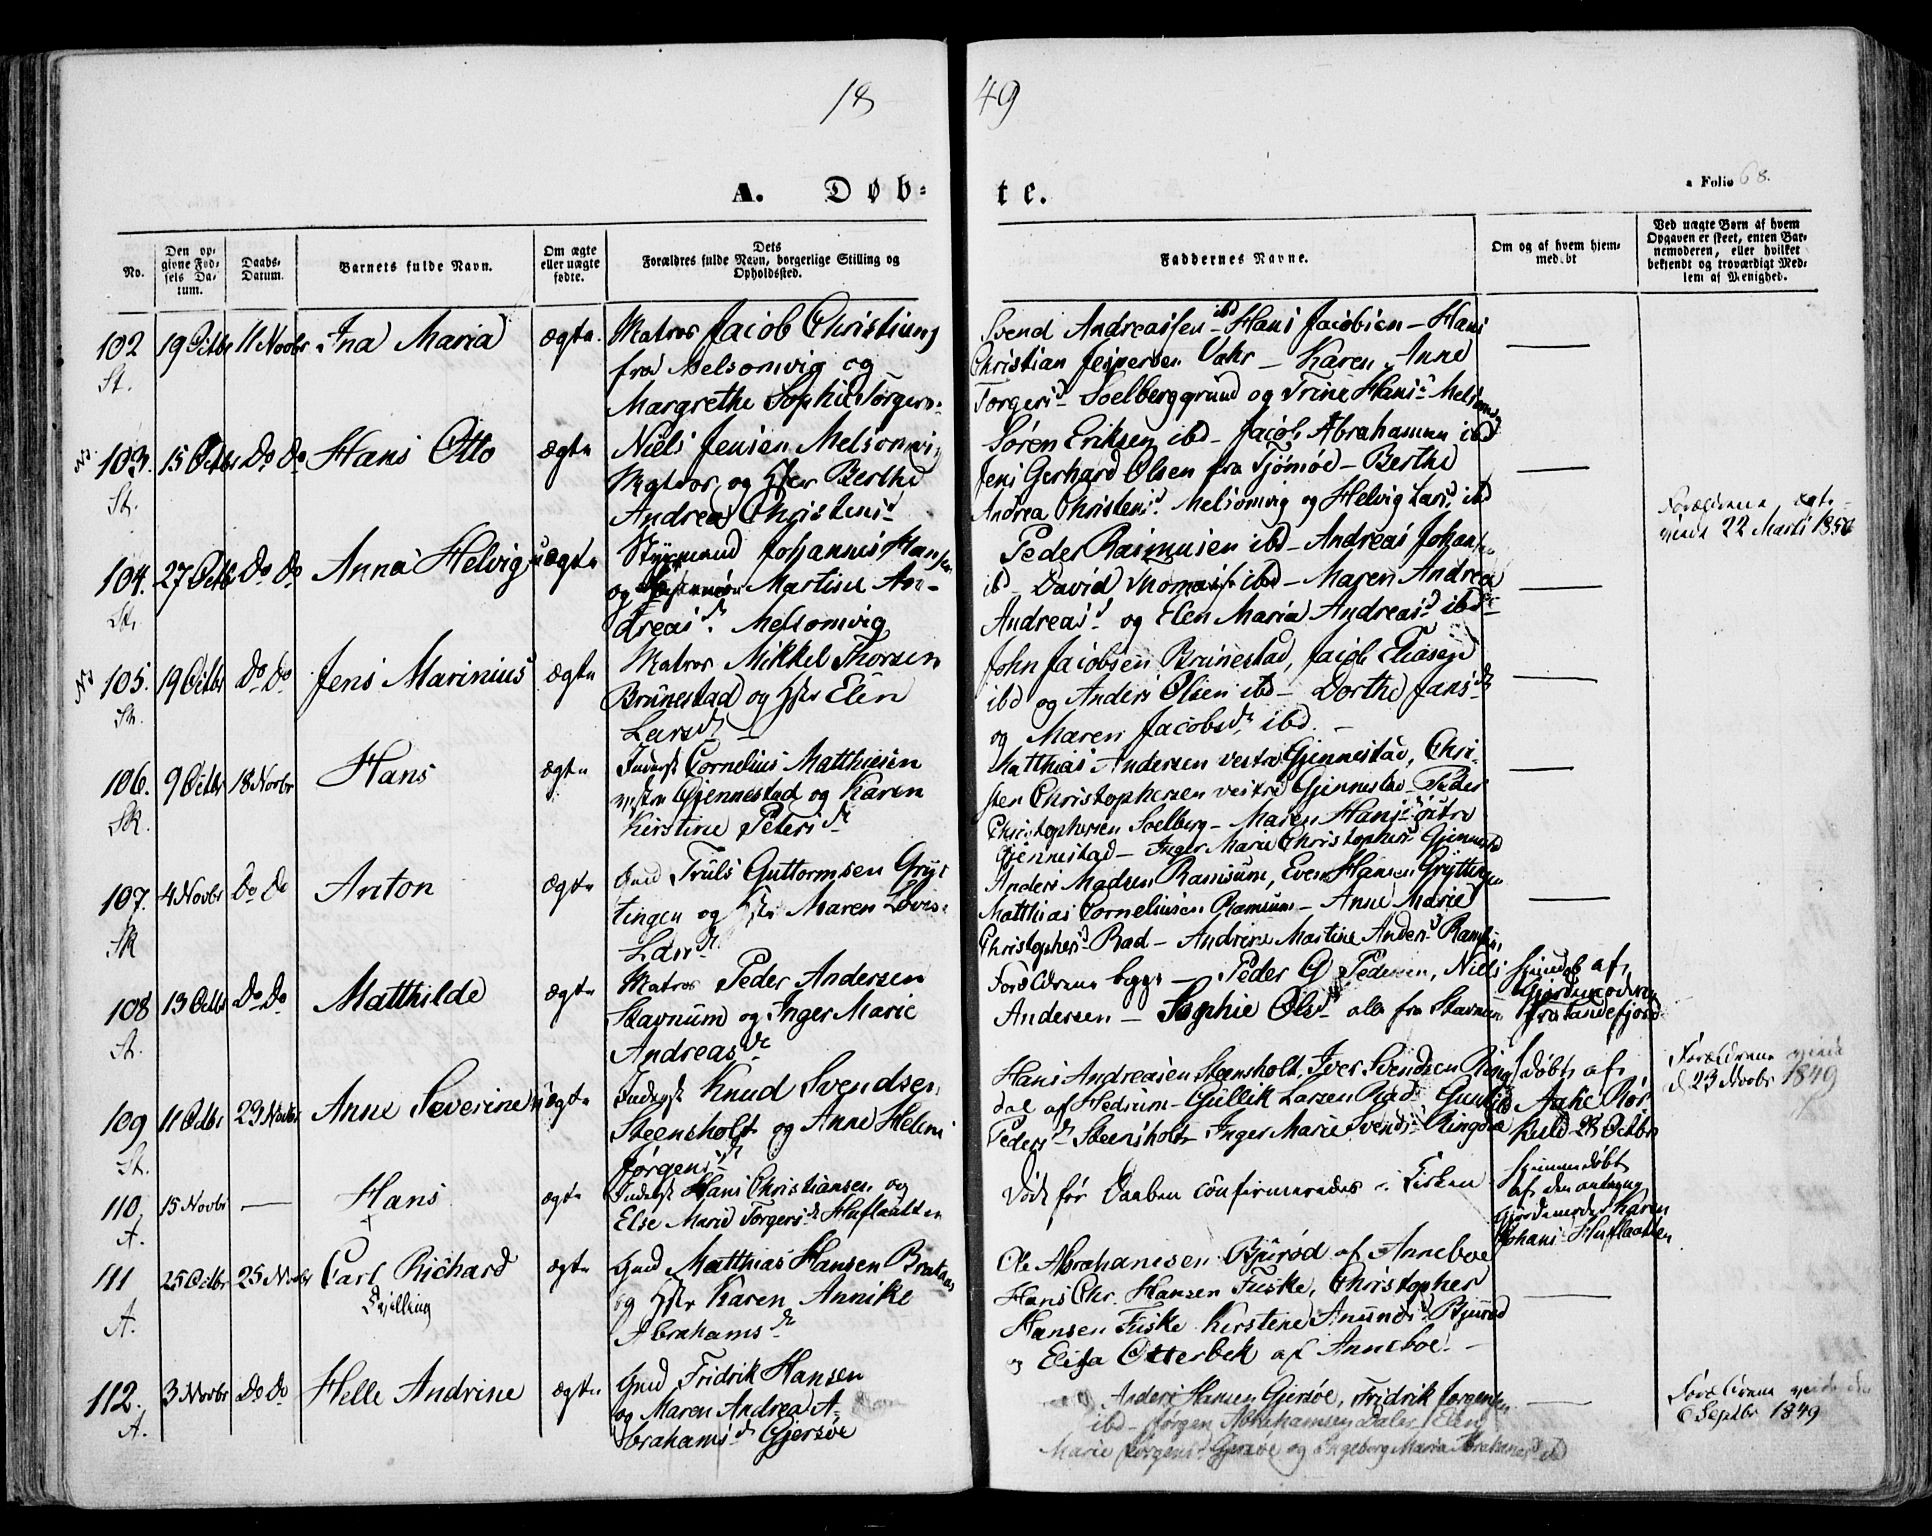 18 49
A. Døb-te.
a Folio 68.
No.
Den op-
givne Fød-
sels Da-
tum.
Daabs-
Datum.
Barnets fulde Navn.
Om ægte
eller uægte
fødte.
Dets
Forældres fulde Navn, borgerlige Stilling og
Opholdssted.
Faddernes Navne.
Om og af hvem hjem-
medøbt
Ved uægte Børn af hvem
Opgaven er skeet, enten Bar-
nemoderen, eller hvilket
bekjendt og troværdigt Med-
lem af Menighed.
102 19 Octbr 11 Novbr Ina Maria ægte Matros Jacob Christians
St.
fra Melsomvig og
Margrethe Sophie Torgers
Svend Andreassen ibd Hans Jacobsen - Hans
Christian Jespersen Vahr - Karen Anne
Torgersd Soelberggrund og Trine Hansd Melsomvig
103. 15 Octbr Do Do Hans Otto ægte Niels Jensen Melsomvig
St.
Matros og Hstr Berthe
Andrea Christensd
Søren Eriksen ibd - Jacob Abrahamsen ibd
Jens Gerhard Olsen fra Tjömöe - Berthe
Andrea Christensd Melsomvig og Helvig Larsd ibd
104. 27 Octbr Do Do Anna Helvig uægte Styrmand Johannes Hansen
St.
og Martine An-
dreasdr. Melsomvig
Peder Rasmusen ibd - Andreas Johans
ibd - David Thomass ibd - Maren Andrea
Andreasd og Elen Maria Andreasd ibd
Forældrene ægte-
viede 22 Marts 1850
105. 19 Octbr Do Do Jens Marinius ægte Matros Mikkel Thorsen
St.
Brunestad og Hstr Elen
Larsdr
John Jacobsen Brunestad, Jacob Eliasen
ibd og Anders Olsen ibd - Dorthe Jansdr
og Maren Jacobsdr ibd. -
106. 9 Octbr 18 Novbr Hans ægte Inderst Cornelius Matthiesen
Sk.
vestre Gjennestad og Karen
Kirstine Petersdr
Matthias Andersen vestre Gjennestad, Chri-
sten Christophersen vestre Gjennestad - Peder
Christophersen Soelberg - Maren Hansd østre
Gjennestad - Inger Marie Christophersd Gjennestad
107. 4 Novbr Do Do Anton ægte Gmd Truls Guttormsen Gryt
Sk
tingen og Hstr Maren Lovise
Larsdr
Anders Madsen Ramsum, Even Hansen Gryttingen
Matthias Corneliusen Ramsum - Anne Marie
Christophersd Rad - Andrine Martine Andersd Ramsum
108 13 Octbr Do Do Matthilde ægte Matros Peder Andersen
St.
Stavnum og Inger Marie
Andreasdr
Forældrene begge - Peder G Pedersen, Niels
Andersen - Sophie Olsdr alle fra Stavnum
hjemdøb af
Gjordemoderen
fra Sandefjord
109 11 Octbr 23 Novbr Anne Severine uægte Inderst Knud Svendsen
St.
Steensholt og Anne Helene
Jörgensdr
Hans Andreasen Steensholt, Iver Svendsen Ring
dal af Hedrum - Gullik Larsen Rad - Gunhild
Pedersdr Steensholt - Inger Marie Svendsd Ringdal
døbt af
Aake Rør
kuld 28 Octbr
Forældrene viede
d 23 Novbr 1849
110. 15 Novbr — Hans ægte Inderst Hans Christiansen og
A.
Else Marie Torgersdr Huflaatten
Döde før Daaben confirmeredes i Kirken
hjemmedøbt
af den antagne
Gjordemoder Karen
Johansd Huflaatten
111 25 Octbr 25 Novbr Carl Richard ægte Gmd Matthias Hansen Brataas
A.
Tvilling
og Hstr Karen Annike
Abrahamsdr
Ole Abrahamsen Bjurød af Anneboe
Hans Chr. Hansen Fuske, Christopher
Hansen Fuske Kirstine Anundsd Bjurød
og Elisa Otterbek af Anneboe -
112. 3 Novbr Do Do Helle Andrine ægte Gmd Fridrik Hansen
A.
og Maren Andrea A-
brahamsdr Gjersøe
Anders Hansen Gjersøe, Fridrik Jorgensen
ibd - Jørgen Abrahamsen Daler, Elen
Marie Jorgensd Gjersøe og Ingeborg Maria Abrahamsd ibd
Forældrene viede den
6 Septbr 1849